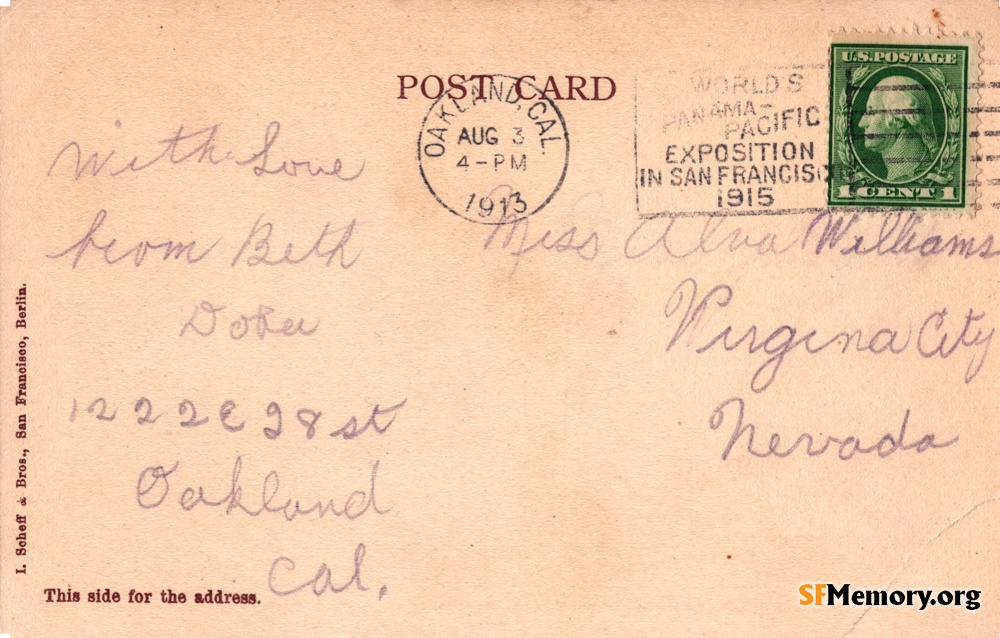 POST CARD
OAKLAND, CAL.
AUG 3
4-PM
1913
WORLD'S
PANAMA-
PACIFIC
EXPOSITION
IN SAN FRANCISCO
1915
U.S. POSTAGE
1 CENT 1
With Love
from Beth
1222 E 28 st
Oakland
Cal.
Miss Alva Williams
Virgina City
Nevada
I. Scheff & Bros., San Francisco, Berlin.
This side for the address.
SFMemory.org